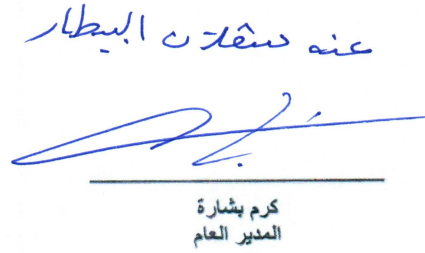 عنه سقلات البيطار
كرم بشارة
المدير العام